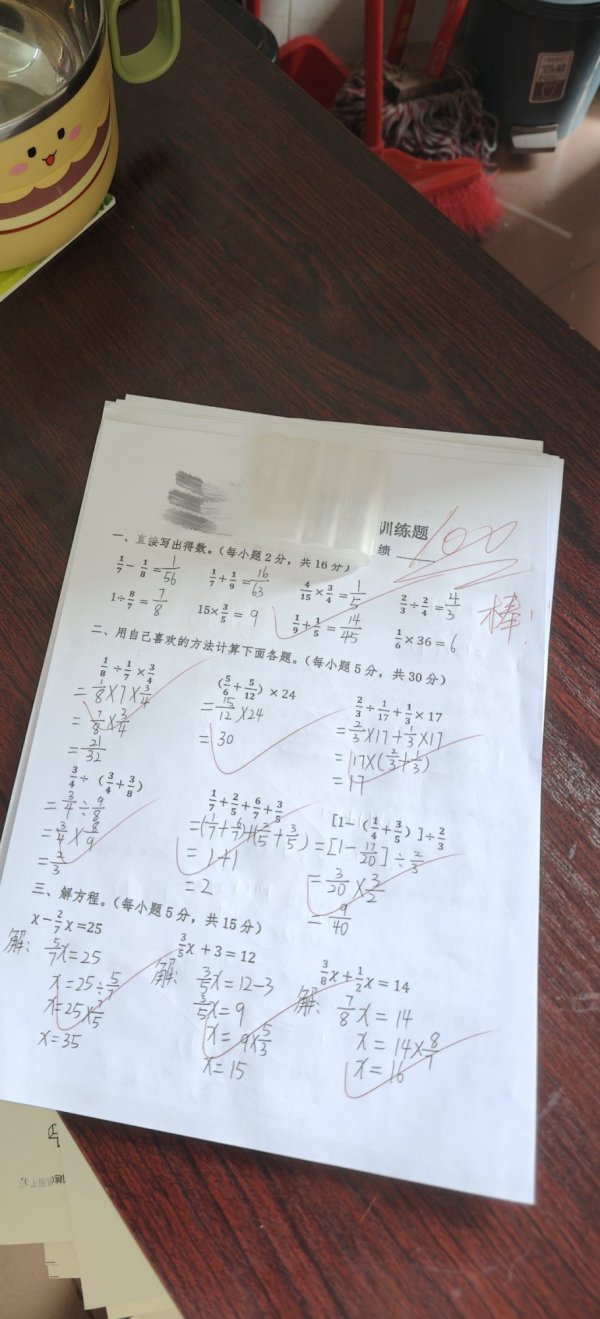 训练题
绩
100
棒!
一、直接写出得数。(每小题2分，共16分)
1/7 - 1/8 = 1/56 1/7 + 1/9 = 16/63 4/15 × 3/4 = 1/5 2/3 ÷ 2/4 = 4/3
1 ÷ 8/7 = 7/8 15 × 3/5 = 9 1/9 + 1/5 = 14/45 1/6 × 36 = 6
二、用自己喜欢的方法计算下面各题。(每小题5分，共30分)
1/8 ÷ 1/7 × 3/4
= 1/8 × 7 × 3/4
= 7/8 × 3/4
= 21/32
(5/6 + 5/12) × 24
= 15/12 × 24
= 30
2/3 ÷ 1/17 + 1/3 × 17
= 2/3 × 17 + 1/3 × 17
= 17 × (2/3 + 1/3)
= 17
3/4 ÷ (3/4 + 3/8)
= 3/4 ÷ 9/8
= 3/4 × 8/9
= 2/3
1/7 + 2/5 + 6/7 + 3/5
= (1/7 + 6/7) + (2/5 + 3/5)
= 1 + 1
= 2
[1 - (1/4 + 3/5)] ÷ 2/3
= [1 - 17/20] ÷ 2/3
= 3/20 × 3/2
= 9/40
三、解方程。(每小题5分，共15分)
x - 2/7 x = 25
解: 5/7 x = 25
x = 25 ÷ 5/7
x = 25 × 7/5
x = 35
3/5 x + 3 = 12
解: 3/5 x = 12 - 3
3/5 x = 9
x = 9 × 5/3
x = 15
3/8 x + 1/2 x = 14
解: 7/8 x = 14
x = 14 × 8/7
x = 16